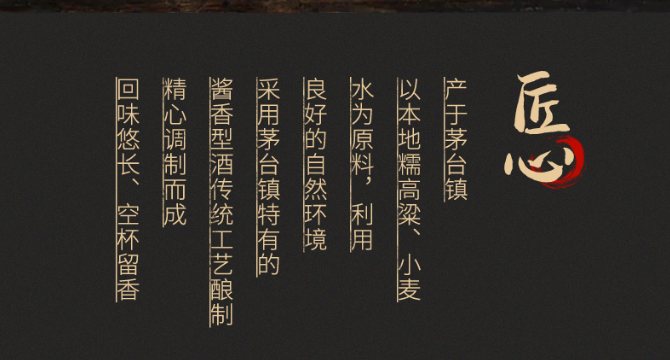 匠心
产于茅台镇
以本地糯高粱、小麦
水为原料，利用
良好的自然环境
采用茅台镇特有的
酱香型酒传统工艺酿制
精心调制而成
回味悠长、空杯留香